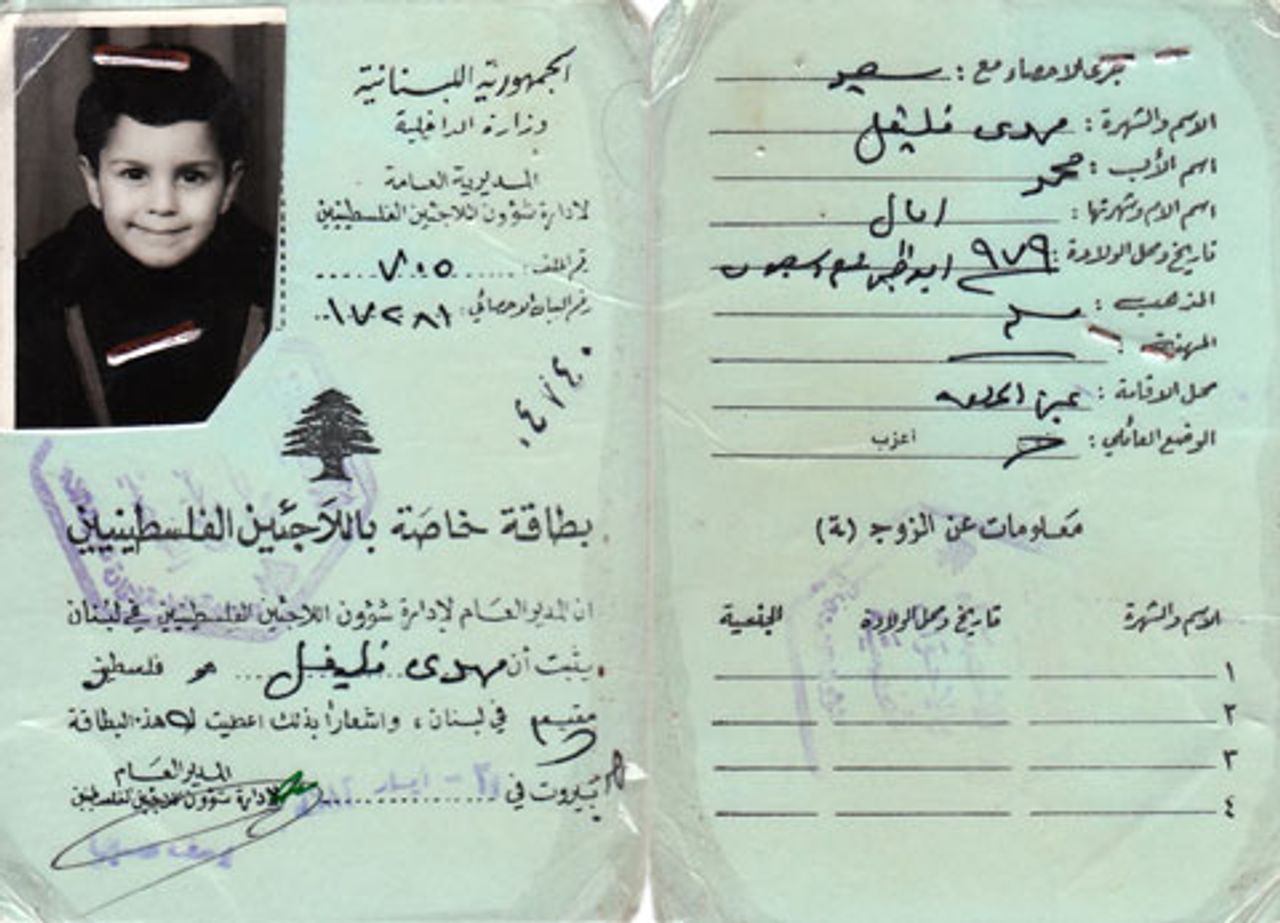 الجمهورية اللبنانية
وزارة الداخلية
المديرية العامة
لإدارة شؤون اللاجئين الفلسطينيين
رقم الملف: ٧٠٥
رقم البيان الاحصائي: ١٧٢٨١
بطاقة خاصة باللاجئين الفلسطينيين
ان المدير العام لإدارة شؤون اللاجئين الفلسطينيين في لبنان
يثبت أن مهدى فليفل هو فلسطيني
مقيم في لبنان، واشعاراً بذلك اعطيت له هذه البطاقة
بيروت في
المدير العام
لإدارة شؤون اللاجئين الفلسطينيين
جرى الاحصاء مع: سعيد
الاسم والشهرة: مهدى فليفل
اسم الأب: محمد
اسم الام وشهرتها: امال
تاريخ ومحل الولادة: ٩٧٩
المذهب: مسلم
المهنة:
محل الاقامة: عين الحلوه
الوضع العائلي: أعزب
معلومات عن الزوج (ـة)
الاسم والشهرة تاريخ ومحل الولادة الجنسية
١
٢
٣
٤